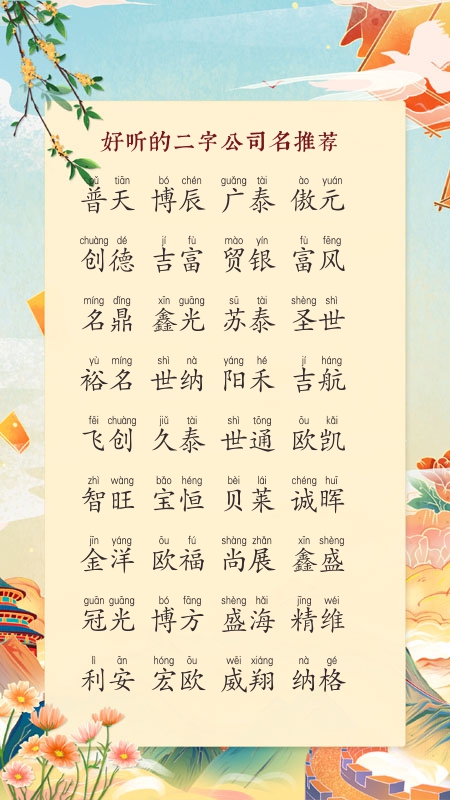 好听的二字公司名推荐
pǔ tiān bó chén guǎng tài ào yuán
普天 博辰 广泰 傲元
chuàng dé jí fù mào yín fù fēng
创德 吉富 贸银 富风
míng dǐng xīn guāng sū tài shèng shì
名鼎 鑫光 苏泰 圣世
yù míng shì nà yáng hé jí háng
裕名 世纳 阳禾 吉航
fēi chuàng jiǔ tài shì tōng ōu kǎi
飞创 久泰 世通 欧凯
zhì wàng bǎo héng bèi lái chéng huī
智旺 宝恒 贝莱 诚晖
jīn yáng ōu fú shàng zhǎn xīn shèng
金洋 欧福 尚展 鑫盛
guān guāng bó fāng shèng hǎi jīng wéi
冠光 博方 盛海 精维
lì ān hóng ōu wēi xiáng nà gé
利安 宏欧 威翔 纳格